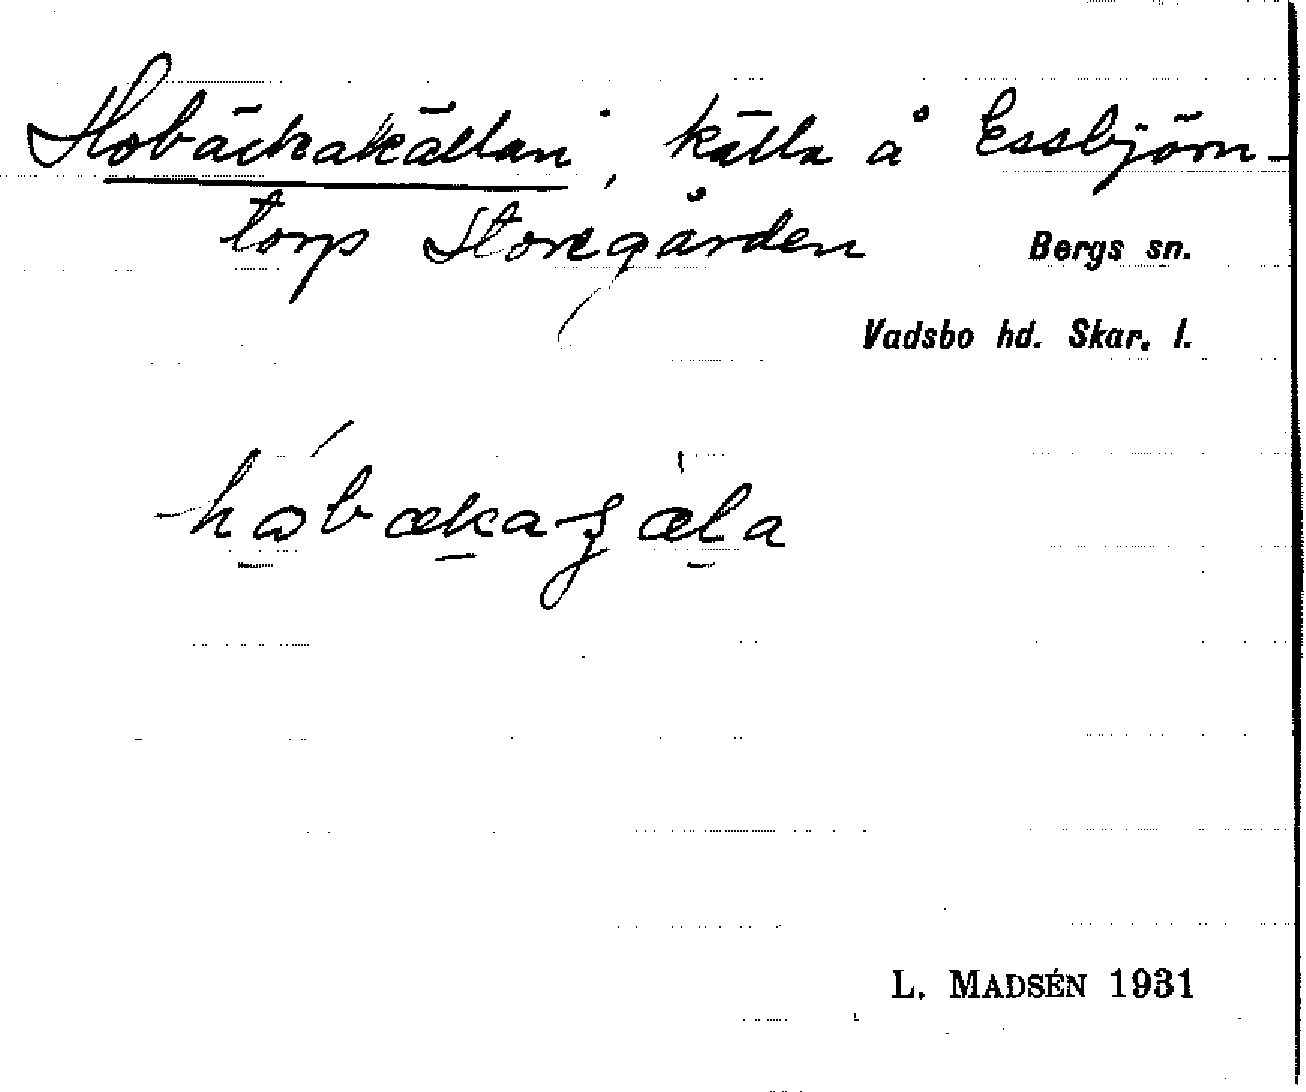 Hobäckakällan, källa å Essbjörn-
torp Storegården
Bergs sn.
Vadsbo hd. Skar. l.
L. MADSÉN 1931